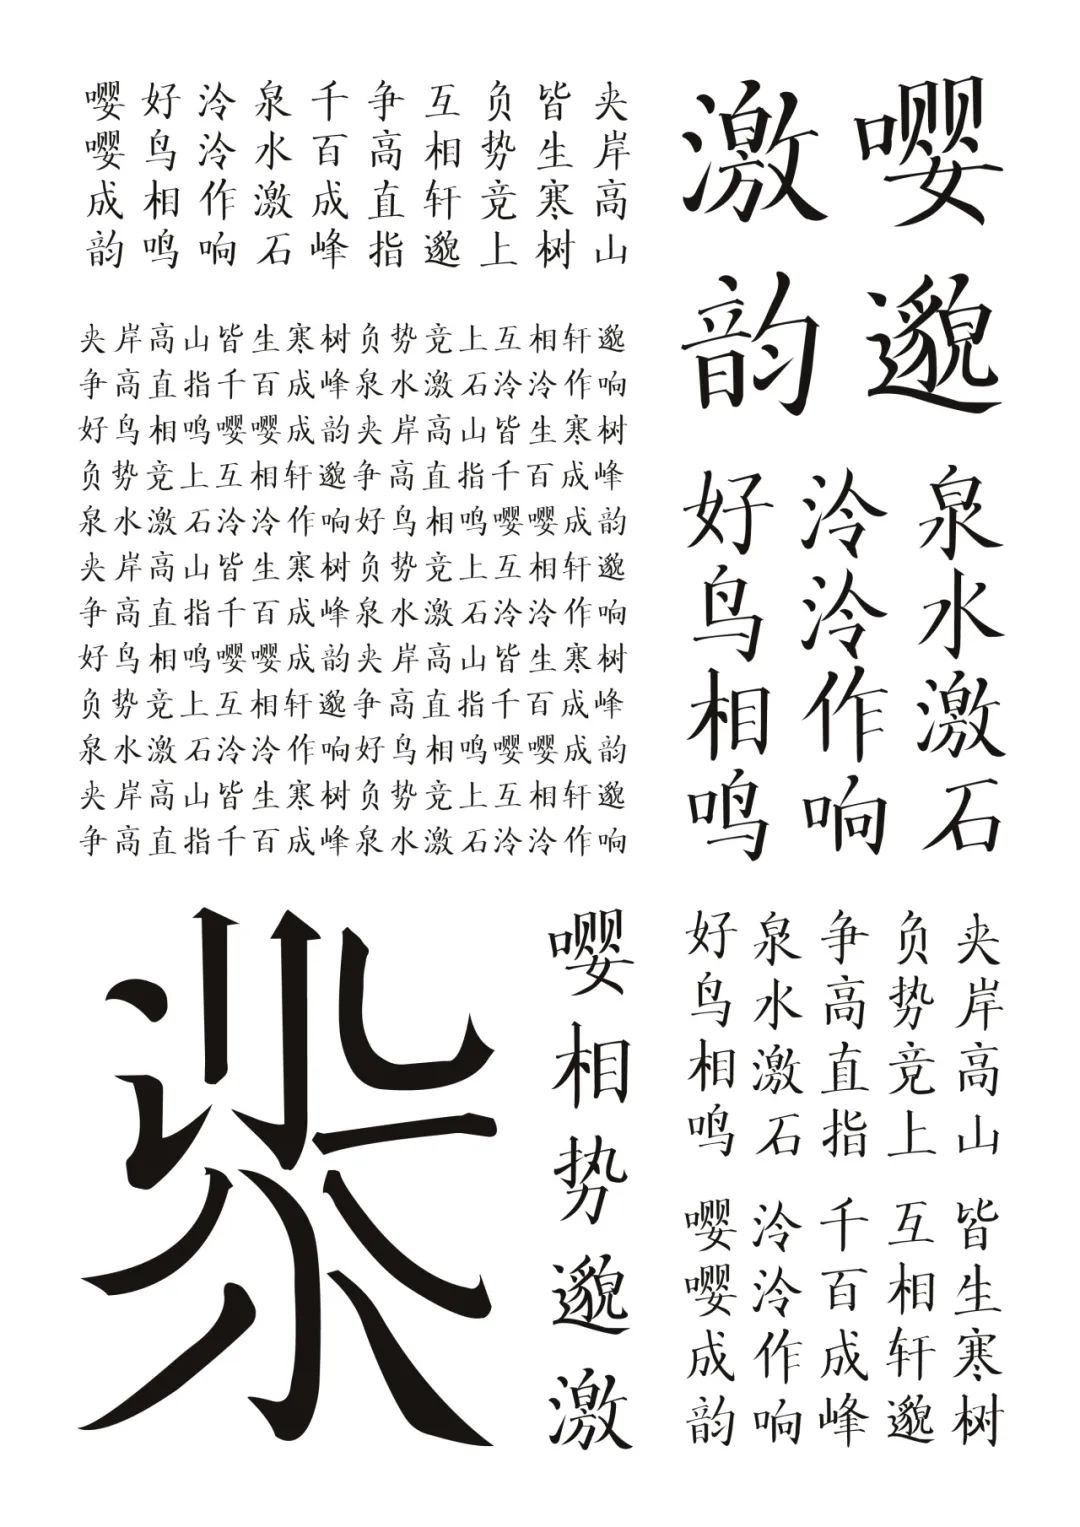 夹岸高山
皆生寒树
负势竞上
互相轩邈
争高直指
千百成峰
泉水激石
泠泠作响
好鸟相鸣
嘤嘤成韵
嘤邈
激韵
夹岸高山皆生寒树负势竞上互相轩邈
争高直指千百成峰泉水激石泠泠作响
好鸟相鸣嘤嘤成韵夹岸高山皆生寒树
负势竞上互相轩邈争高直指千百成峰
泉水激石泠泠作响好鸟相鸣嘤嘤成韵
夹岸高山皆生寒树负势竞上互相轩邈
争高直指千百成峰泉水激石泠泠作响
好鸟相鸣嘤嘤成韵夹岸高山皆生寒树
负势竞上互相轩邈争高直指千百成峰
泉水激石泠泠作响好鸟相鸣嘤嘤成韵
夹岸高山皆生寒树负势竞上互相轩邈
争高直指千百成峰泉水激石泠泠作响
泉水激石
泠泠作响
好鸟相鸣
嘤相势邈激
夹岸高山
负势竞上
争高直指
泉水激石
好鸟相鸣
皆生寒树
互相轩邈
千百成峰
泠泠作响
嘤嘤成韵